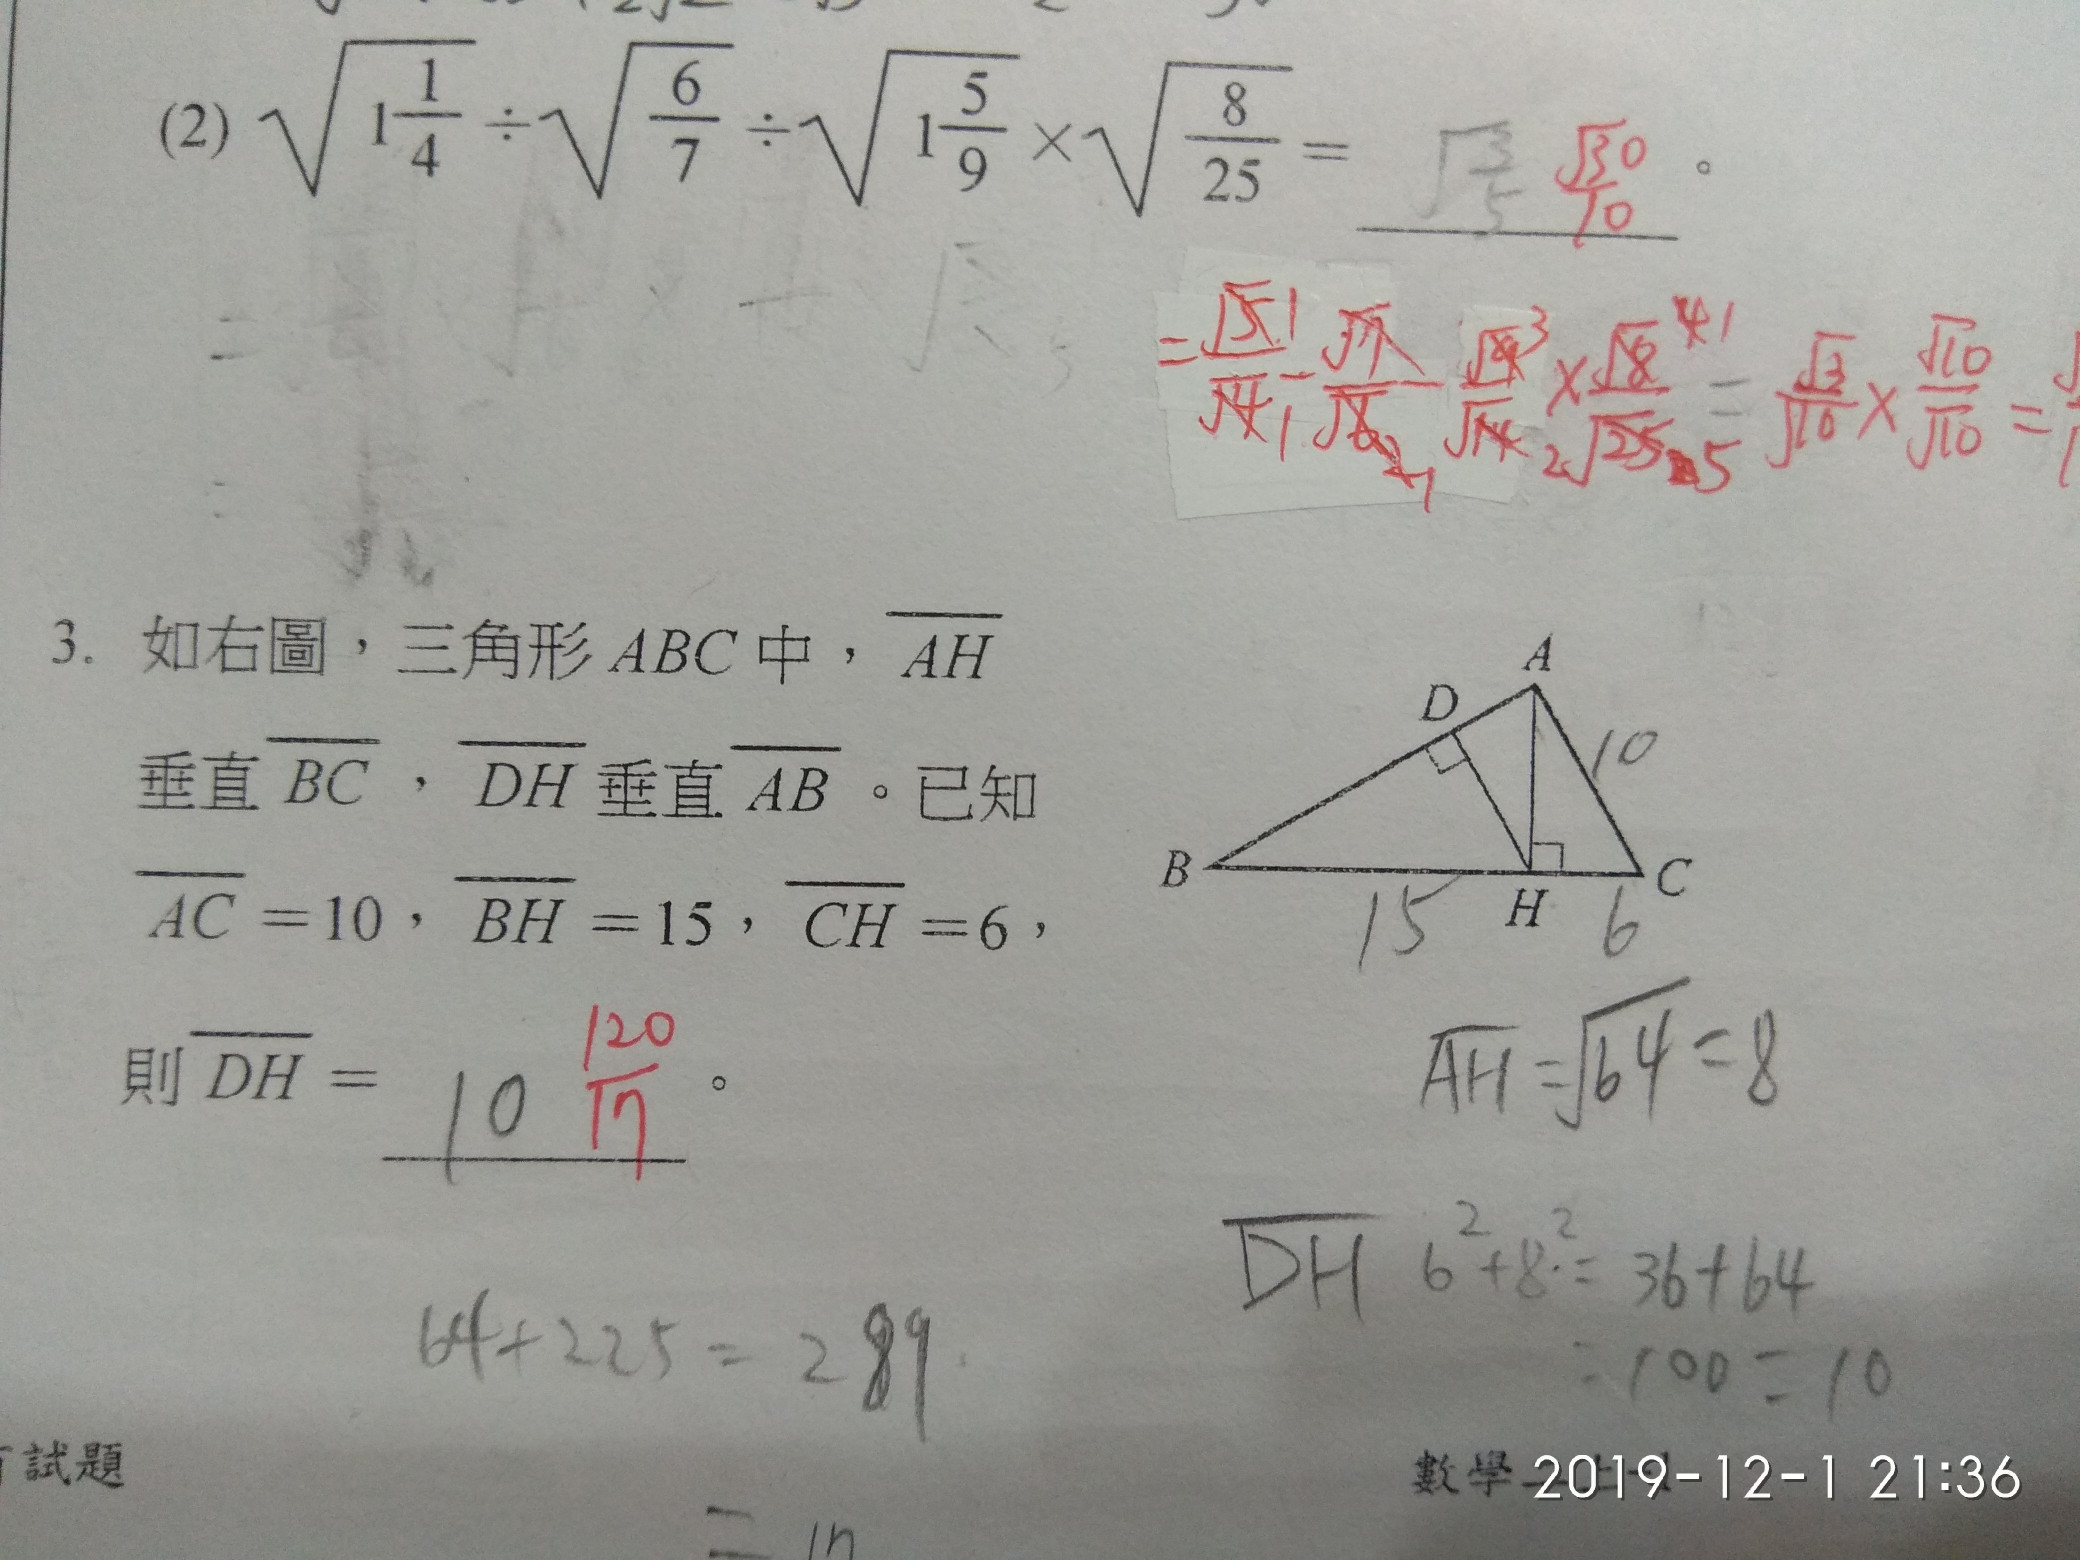 (2) √(1 1/4) ÷ √(6/7) ÷ √(1 5/9) × √(8/25) = √3/5 √30/10 。
= √5/√4 - √7/√6 - √9/√14 × √8/√25 = √3/√10 × √10/√10 =
3. 如右圖，三角形 ABC 中，AH
垂直 BC ， DH 垂直 AB 。已知
AC =10， BH =15， CH =6，
則 DH = 10 120/17 。
A
D
10
B
H
C
15
6
AH = √64 = 8
DH 6²+8² = 36+64
= 100 = 10
64+225 = 289
= 17
試題
數學
2019-12-1 21:36